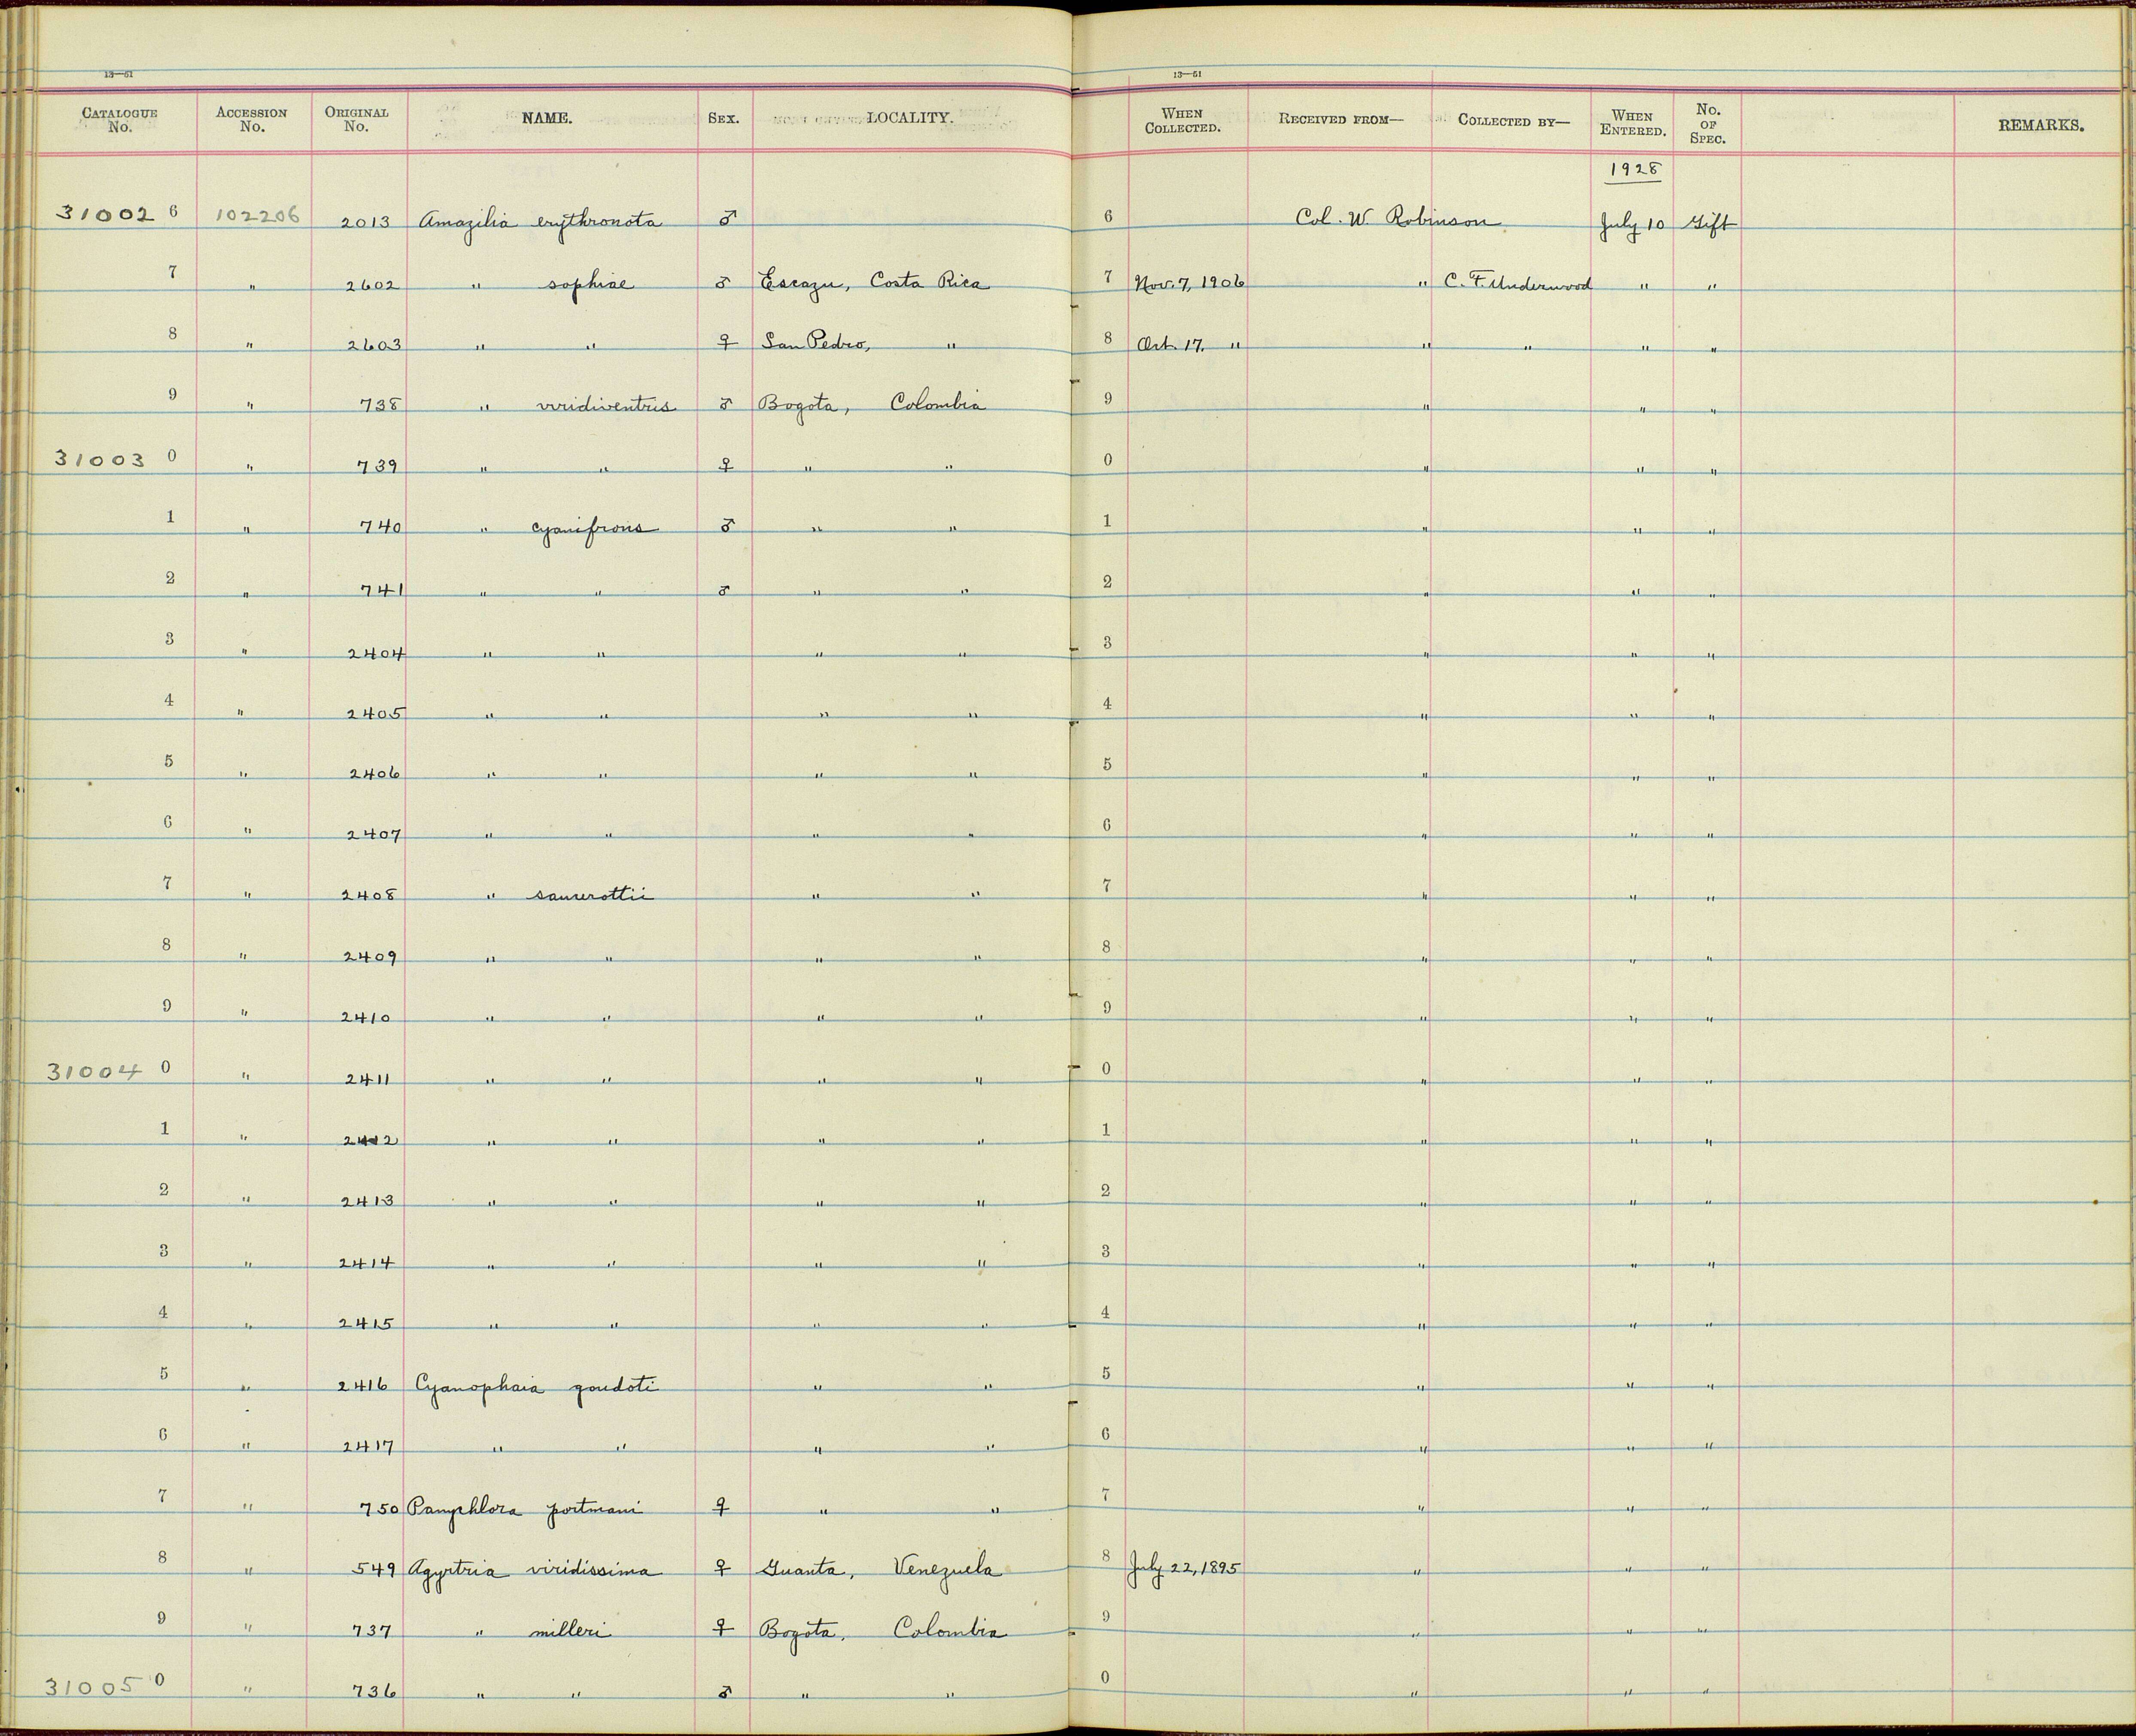 13—61 13—61
CATALOGUE No. ACCESSION No. ORIGINAL No. NAME. SEX. LOCALITY. WHEN COLLECTED. RECEIVED FROM— COLLECTED BY— WHEN ENTERED. No. OF SPEC. REMARKS.
1928
31002 6 102206 2013 Amazilia erythronota ♂ 6 Col. W Robinson July 10 Gift
7 " 2602 " sophiae ♂ Escazu, Costa Rica 7 Nov. 7, 1906 " C. F. Underwood " "
8 " 2603 " " ♀ San Pedro, " 8 Oct. 17. " " " " "
9 " 738 " viridiventris ♂ Bogota, Colombia 9 " " "
31003 0 " 739 " " ♀ " " 0 " " "
1 " 740 " cyanifrons ♂ " " 1 " " "
2 " 741 " " ♂ " " 2 " " "
3 " 2404 " " " " 3 " " "
4 " 2405 " " " " 4 " " "
5 " 2406 " " " " 5 " " "
6 " 2407 " " " " 6 " " "
7 " 2408 " saucerottii " " 7 " " "
8 " 2409 " " " " 8 " " "
9 " 2410 " " " " 9 " " "
31004 0 " 2411 " " " " 0 " " "
1 " 2412 " " " " 1 " " "
2 " 2413 " " " " 2 " " "
3 " 2414 " " " " 3 " " "
4 " 2415 " " " " 4 " " "
5 " 2416 Cyanophaia goudoti " " 5 " " "
6 " 2417 " " " " 6 " " "
7 " 750 Panychlora portmani ♀ " " 7 " " "
8 " 549 Agyrtria viridissima ♀ Guanta, Venezuela 8 July 22, 1895 " " "
9 " 737 " milleri ♀ Bogota, Colombia 9 " " "
31005 0 " 736 " " ♂ " " 0 " " "